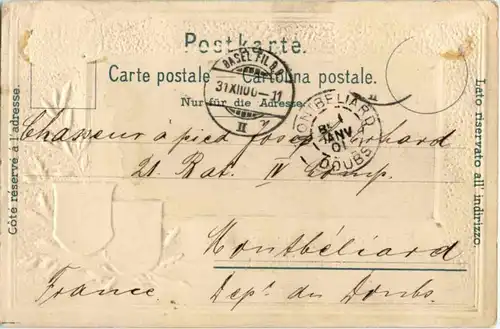 Postkarte.
Carte postale. Cartolina postale.
Nur für die Adresse.
BASEL FIL. B.B.
31.XII.00-11
II
MONTBÉLIARD
1
JANV
01
DOUBS
Chasseur à pied Joseph
21. Bat. IV Comp.
Montbéliard
France Dept. du Doubs.
Côté réservé à l'adresse.
Lato riservato all' indirizzo.